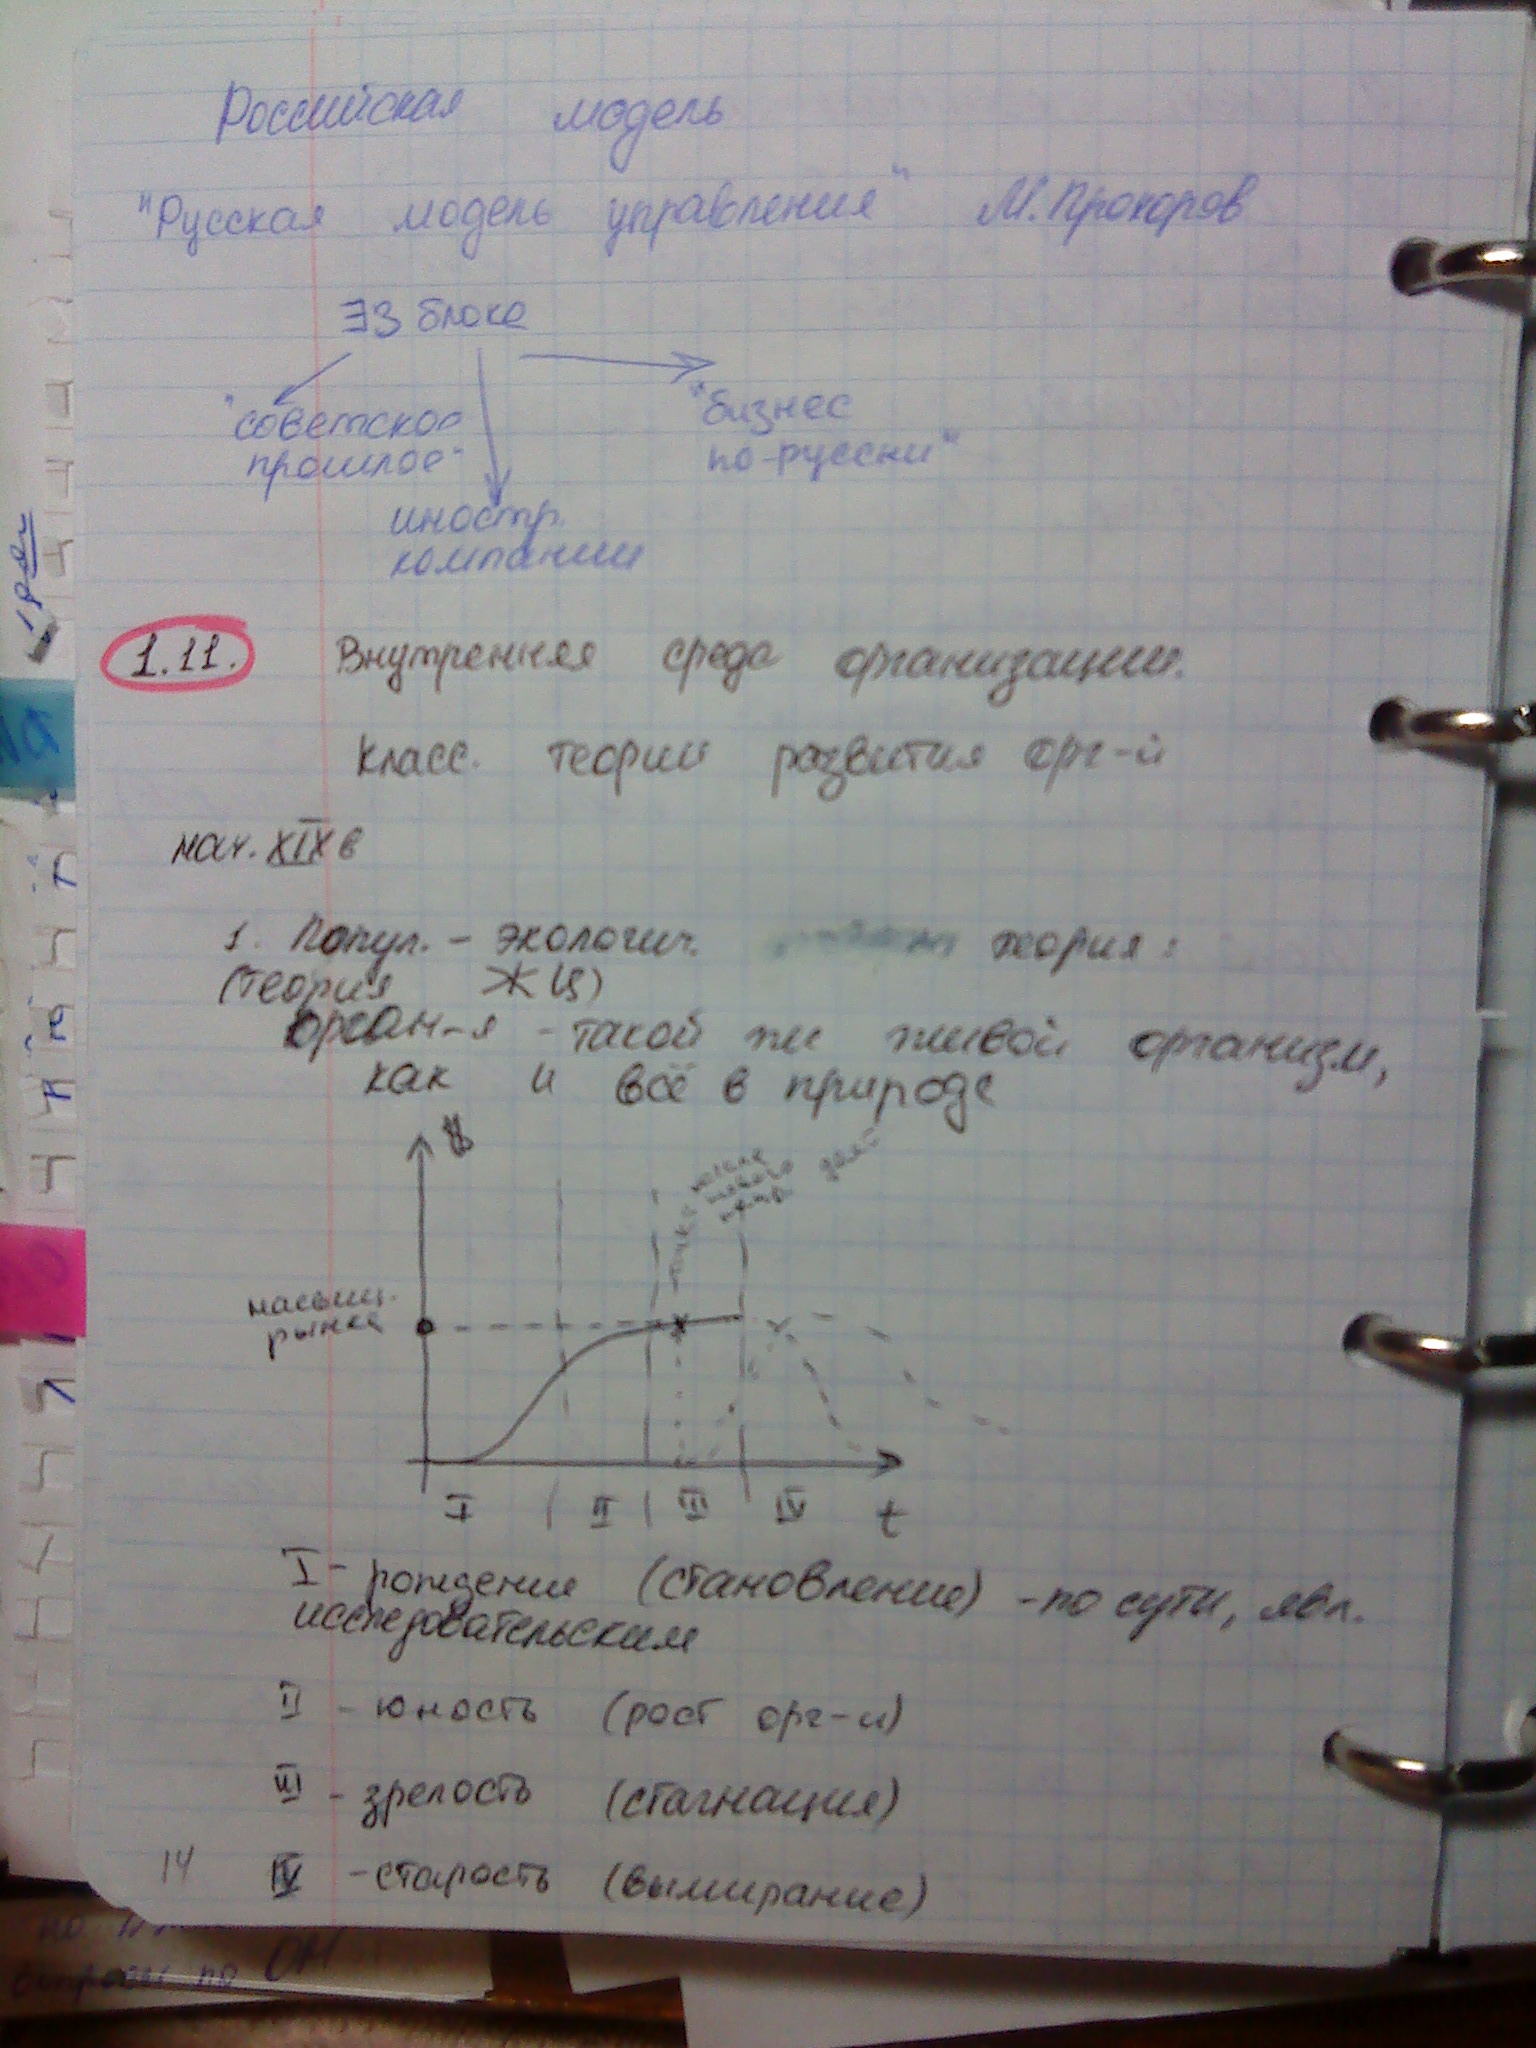 Российская модель
"Русская модель управления" М. Прохоров
∃ 3 блока
"советское
прошлое"
"бизнес
по-русски"
иностр.
компании
1.11. Внутренняя среда организации.
класс. теории развития орг-й
нач. XIX в
1. Попул. - экологич. теория:
(теория ЖЦ)
орган-я - такой же живой организм,
как и всё в природе
насыщ.
рынка
I II III IV t
I - рождение (становление) - по сути, явл.
исследовательским
II - юность (рост орг-и)
III - зрелость (стагнация)
14 IV - старость (вымирание)